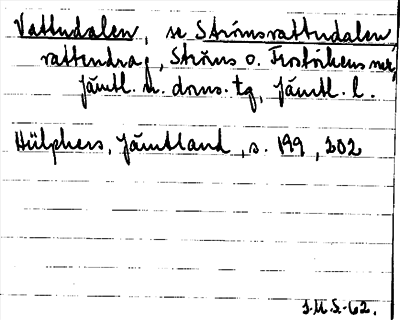 Vattudalen, se Strömsvattudalen,
vattendrag, Ströms o. Frostvikens snr,
Jämtl. n. doms. tg, Jämtl. l.
Hülphers, Jämtland, s. 199, 202
J.M.S.-62.